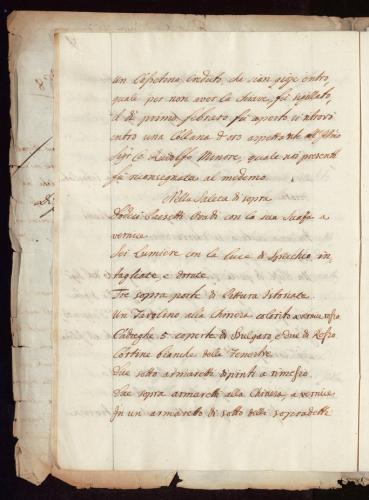 un Cassettino creduto che sian gioje entro
quale per non aver la chiave, fu sigillato,
il dì primo febraro fu aperto si trovò
entro una Collana d'oro aspettante all'
Sigr Co Rudolfo Minore, quale noi presenti
fu riconsegnata al medemo
Nella Saleta di sopra
Dodici Quadretti ovadi con la sua
vernice
Sei Lumiere con la Luce di Specchio in,
tagliate, e dorate
Tre sopra porte di Pittura istoriate
Un Tavolino alla Chinese colorito a vernice rosso
Cadreghe 5 coperte di Bulgaro, e due di
Cortine bianche delle Fenestre
due sotto armaretti dipinti a
Due sopra armaretti alla Chinese, a vernice
In un armaretto di sotto delli sopradetti